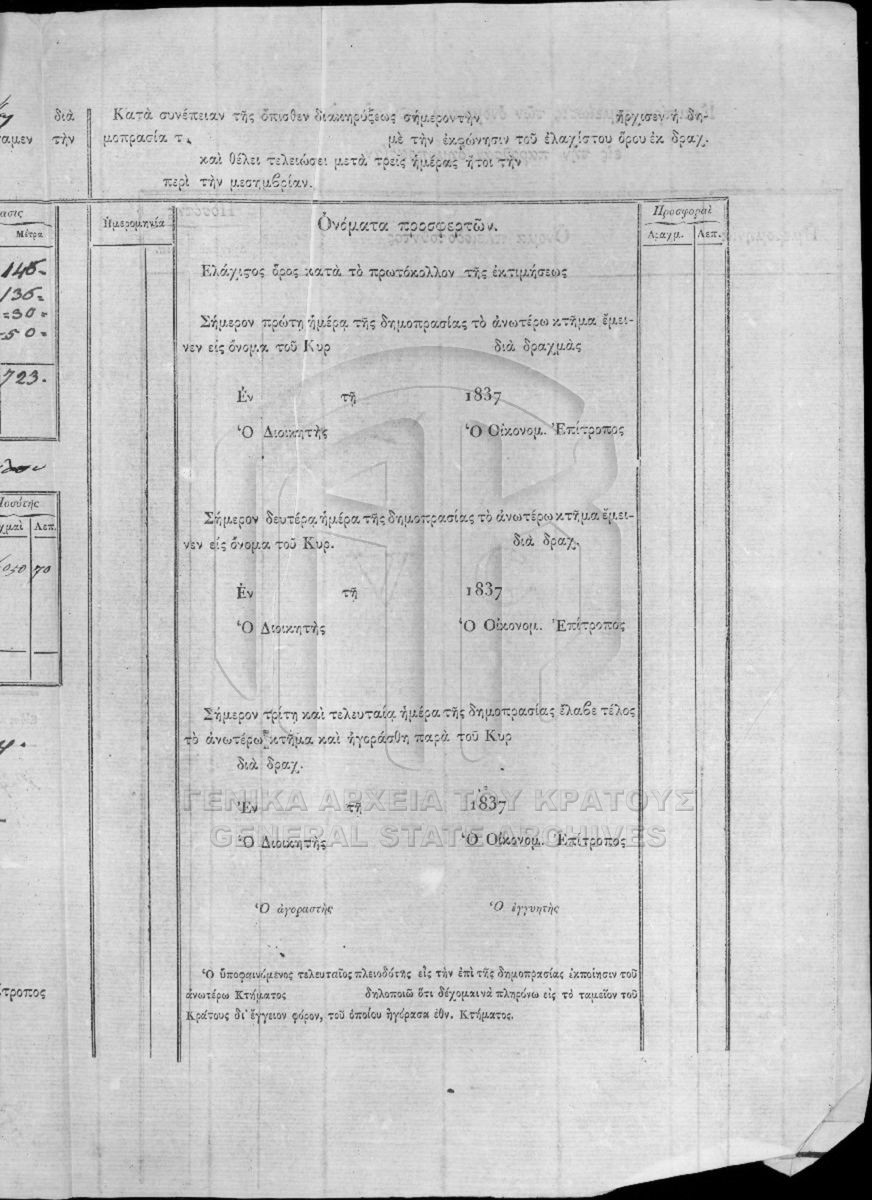 διὰ
αμεν τὴν
ασις
Μέτρα
145-
136=
=30=
-50-
723.
Ποσότης
χμαὶ Λεπ.
050 70
ίτροπος
Κατὰ συνέπειαν τῆς ὄπισθεν διακηρύξεως σήμερον τὴν ἤρχισεν ἡ δη-
μοπρασία τ. μὲ τὴν ἐκφώνησιν τοῦ ἐλαχίστου ὅρου ἐκ δραχ.
καὶ θέλει τελειώσει μετὰ τρεῖς ἡμέρας ἤτοι τὴν
περὶ τὴν μεσημβρίαν.
Ἡμερομηνία Ὀνόματα προσφερτῶν. Προσφοραὶ
Δραχμ. Λεπ.
Ἐλάχιςος ὅρος κατὰ τὸ πρωτόκολλον τῆς ἐκτιμήσεως
Σήμερον πρώτη ἡμέρα τῆς δημοπρασίας τὸ ἀνωτέρω κτῆμα ἔμει-
νεν εἰς ὄνομα τοῦ Κυρ διὰ δραχμὰς
Ἐν τῇ 1837
Ὁ Διοικητὴς Ὁ Οἰκονομ. Ἐπίτροπος
Σήμερον δευτέρα ἡμέρα τῆς δημοπρασίας τὸ ἀνωτέρω κτῆμα ἔμει-
νεν εἰς ὄνομα τοῦ Κυρ. διὰ δραχ.
Ἐν τῇ 1837
Ὁ Διοικητὴς Ὁ Οἰκονομ. Ἐπίτροπος
Σήμερον τρίτη καὶ τελευταία ἡμέρα τῆς δημοπρασίας ἔλαβε τέλος
τὸ ἀνωτέρω κτῆμα καὶ ἠγοράσθη παρὰ τοῦ Κυρ
διὰ δραχ.
Ἐν τῇ 1837
Ὁ Διοικητὴς Ὁ Οἰκονομ. Ἐπίτροπος
Ὁ ἀγοραστὴς Ὁ ἐγγυητὴς
Ὁ ὑποφαινόμενος τελευταῖος πλειοδότης εἰς τὴν ἐπὶ τῆς δημοπρασίας ἐκποίησιν τοῦ
ἀνωτέρω Κτήματος δηλοποιῶ ὅτι δέχομαι νὰ πληρόνω εἰς τὸ ταμεῖον τοῦ
Κράτους δι' ἔγγειον φόρον, τοῦ ὁποίου ἠγόρασα ἐθν. Κτήματος.
ΓΕΝΙΚΑ ΑΡΧΕΙΑ ΤΟΥ ΚΡΑΤΟΥΣ
GENERAL STATE ARCHIVES